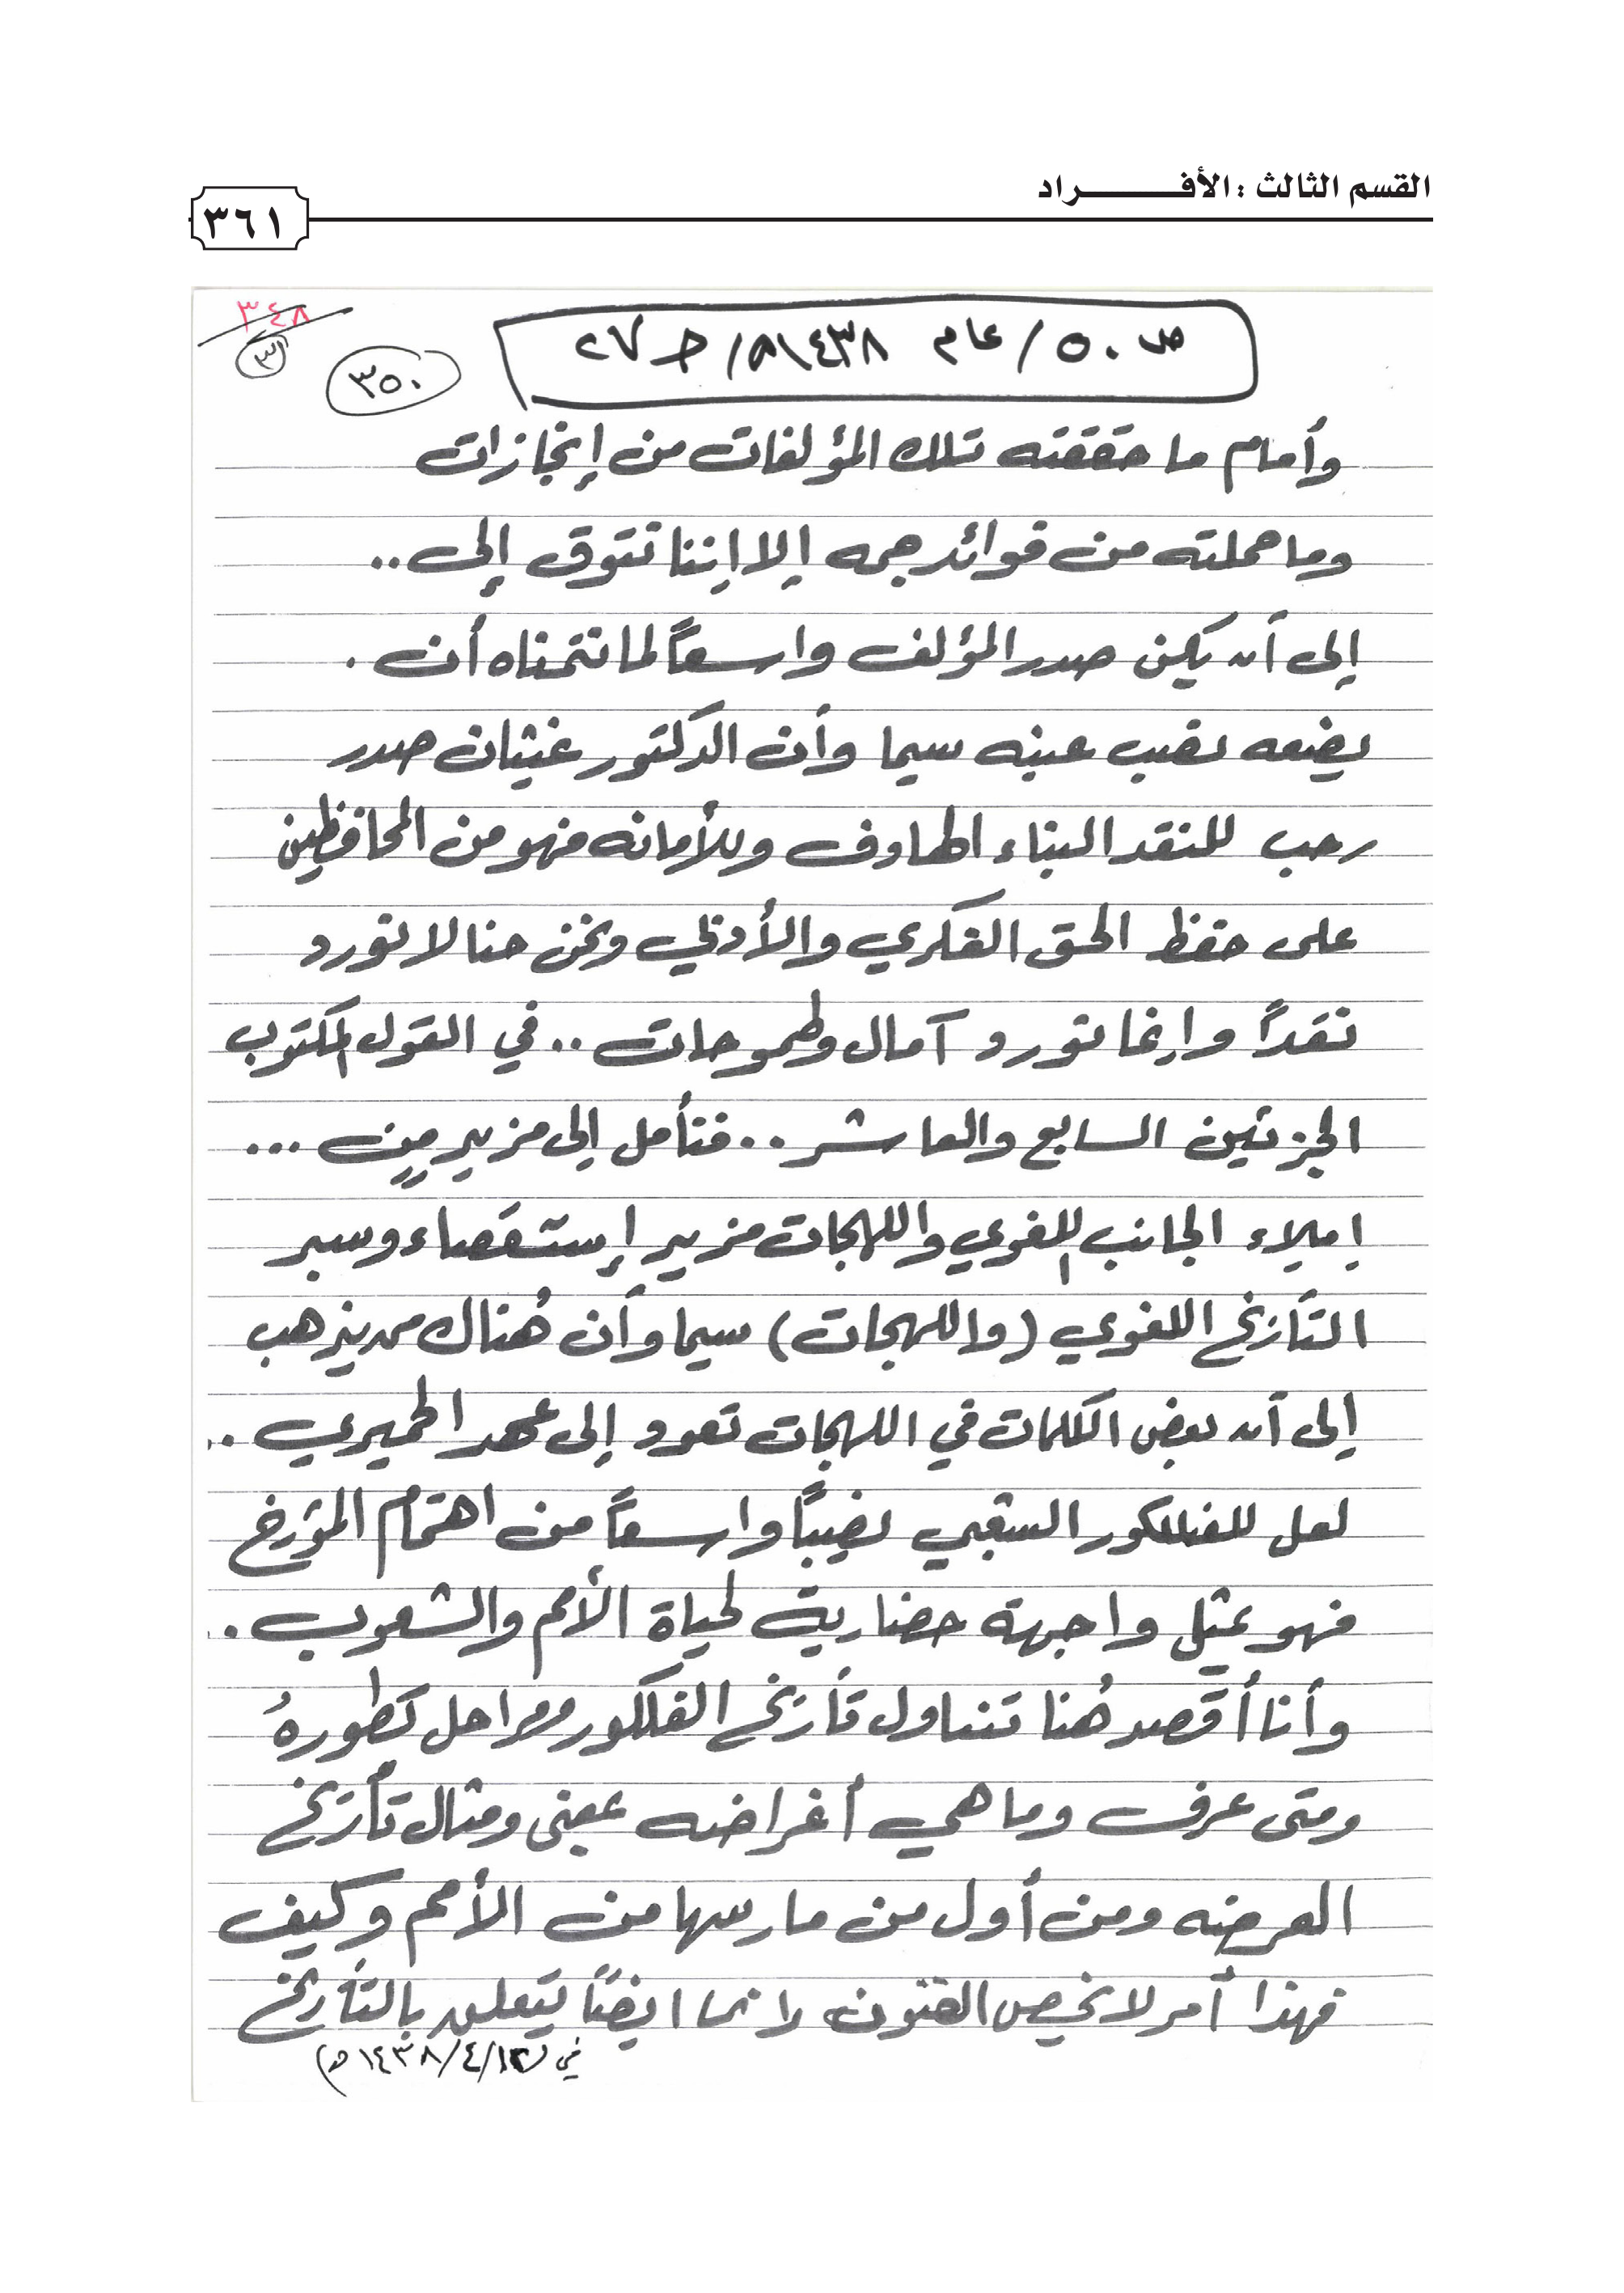 القسم الثالث : الأفــراد
٣٦١
٣٤٨
٣
٣٥٠
ص ٥٠ / عام ١٤٣٨هـ / ج ٢٧
وأمام ما حققته تلك المؤلفات من إنجازات
وما حملته من فوائد جمه إلا إننا نتوق إلى ..
إلى أن يكون صدر المؤلف واسعاً لما نتمناه أن .
يضعه نصب عينه سيما وأن الدكتور غيثان صدر
رحب للنقد البناء الهادف وللأمانه فهو من المحافظين
على حفظ الحق الفكري والأدبي ونحن هنا لا نورد
نقداً وإنما نورد آمال وطموحات .. في القول المكتوب
الجزئين السابع والعاشر .. فنأمل إلى مزيد من ...
إيلاء الجانب اللغوي واللهجات مزيد إستقصاء وسبر
التأريخ اللغوي (واللهجات) سيما وأن هُناك من يذهب
إلى أن بعض الكلمات في اللهجات تعود إلى عهد الحميري ..
لعل للفللكور الشعبي نصيباً واسعاً من اهتمام المؤرخ
فهو يمثل واجهة حضارية لحياة الأمم والشعوب .
وأنا أقصد هُنا تناول تأريخ الفلكور ومراحل تطورهُ
ومتى عرف وما هي أغراضه بمعنى ومثال تأريخ
العرضه ومن أول من مارسها من الأمم وكيف
فهذا أمر لا يخص الفنون وإنما ايضاً يتعلق بالتأريخ
في (١٢/٤/١٤٣٨هـ)